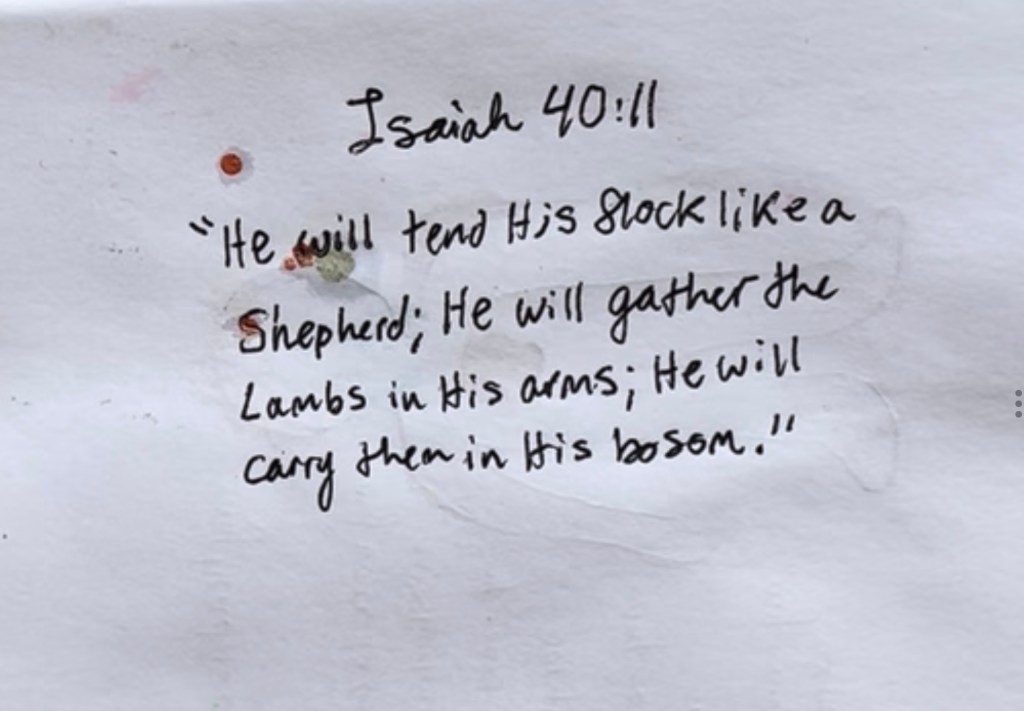 Isaiah 40:11
"He will tend His flock like a
Shepherd; He will gather the
Lambs in His arms; He will
carry them in His bosom."